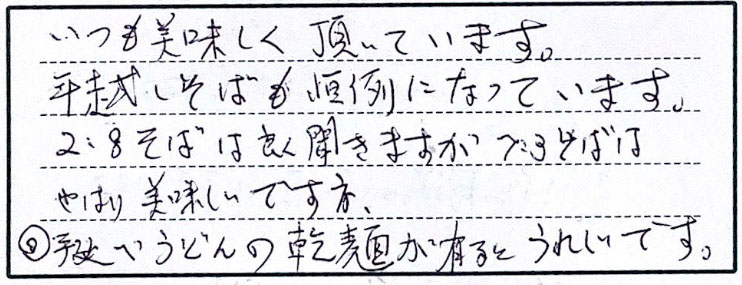 いつも美味しく頂いています。
年越しそばも恒例になっています。
2:8そばは良く聞きますが7:3そばは
やはり美味しいですネ、
手延べうどんの乾麺が有るとうれしいです。